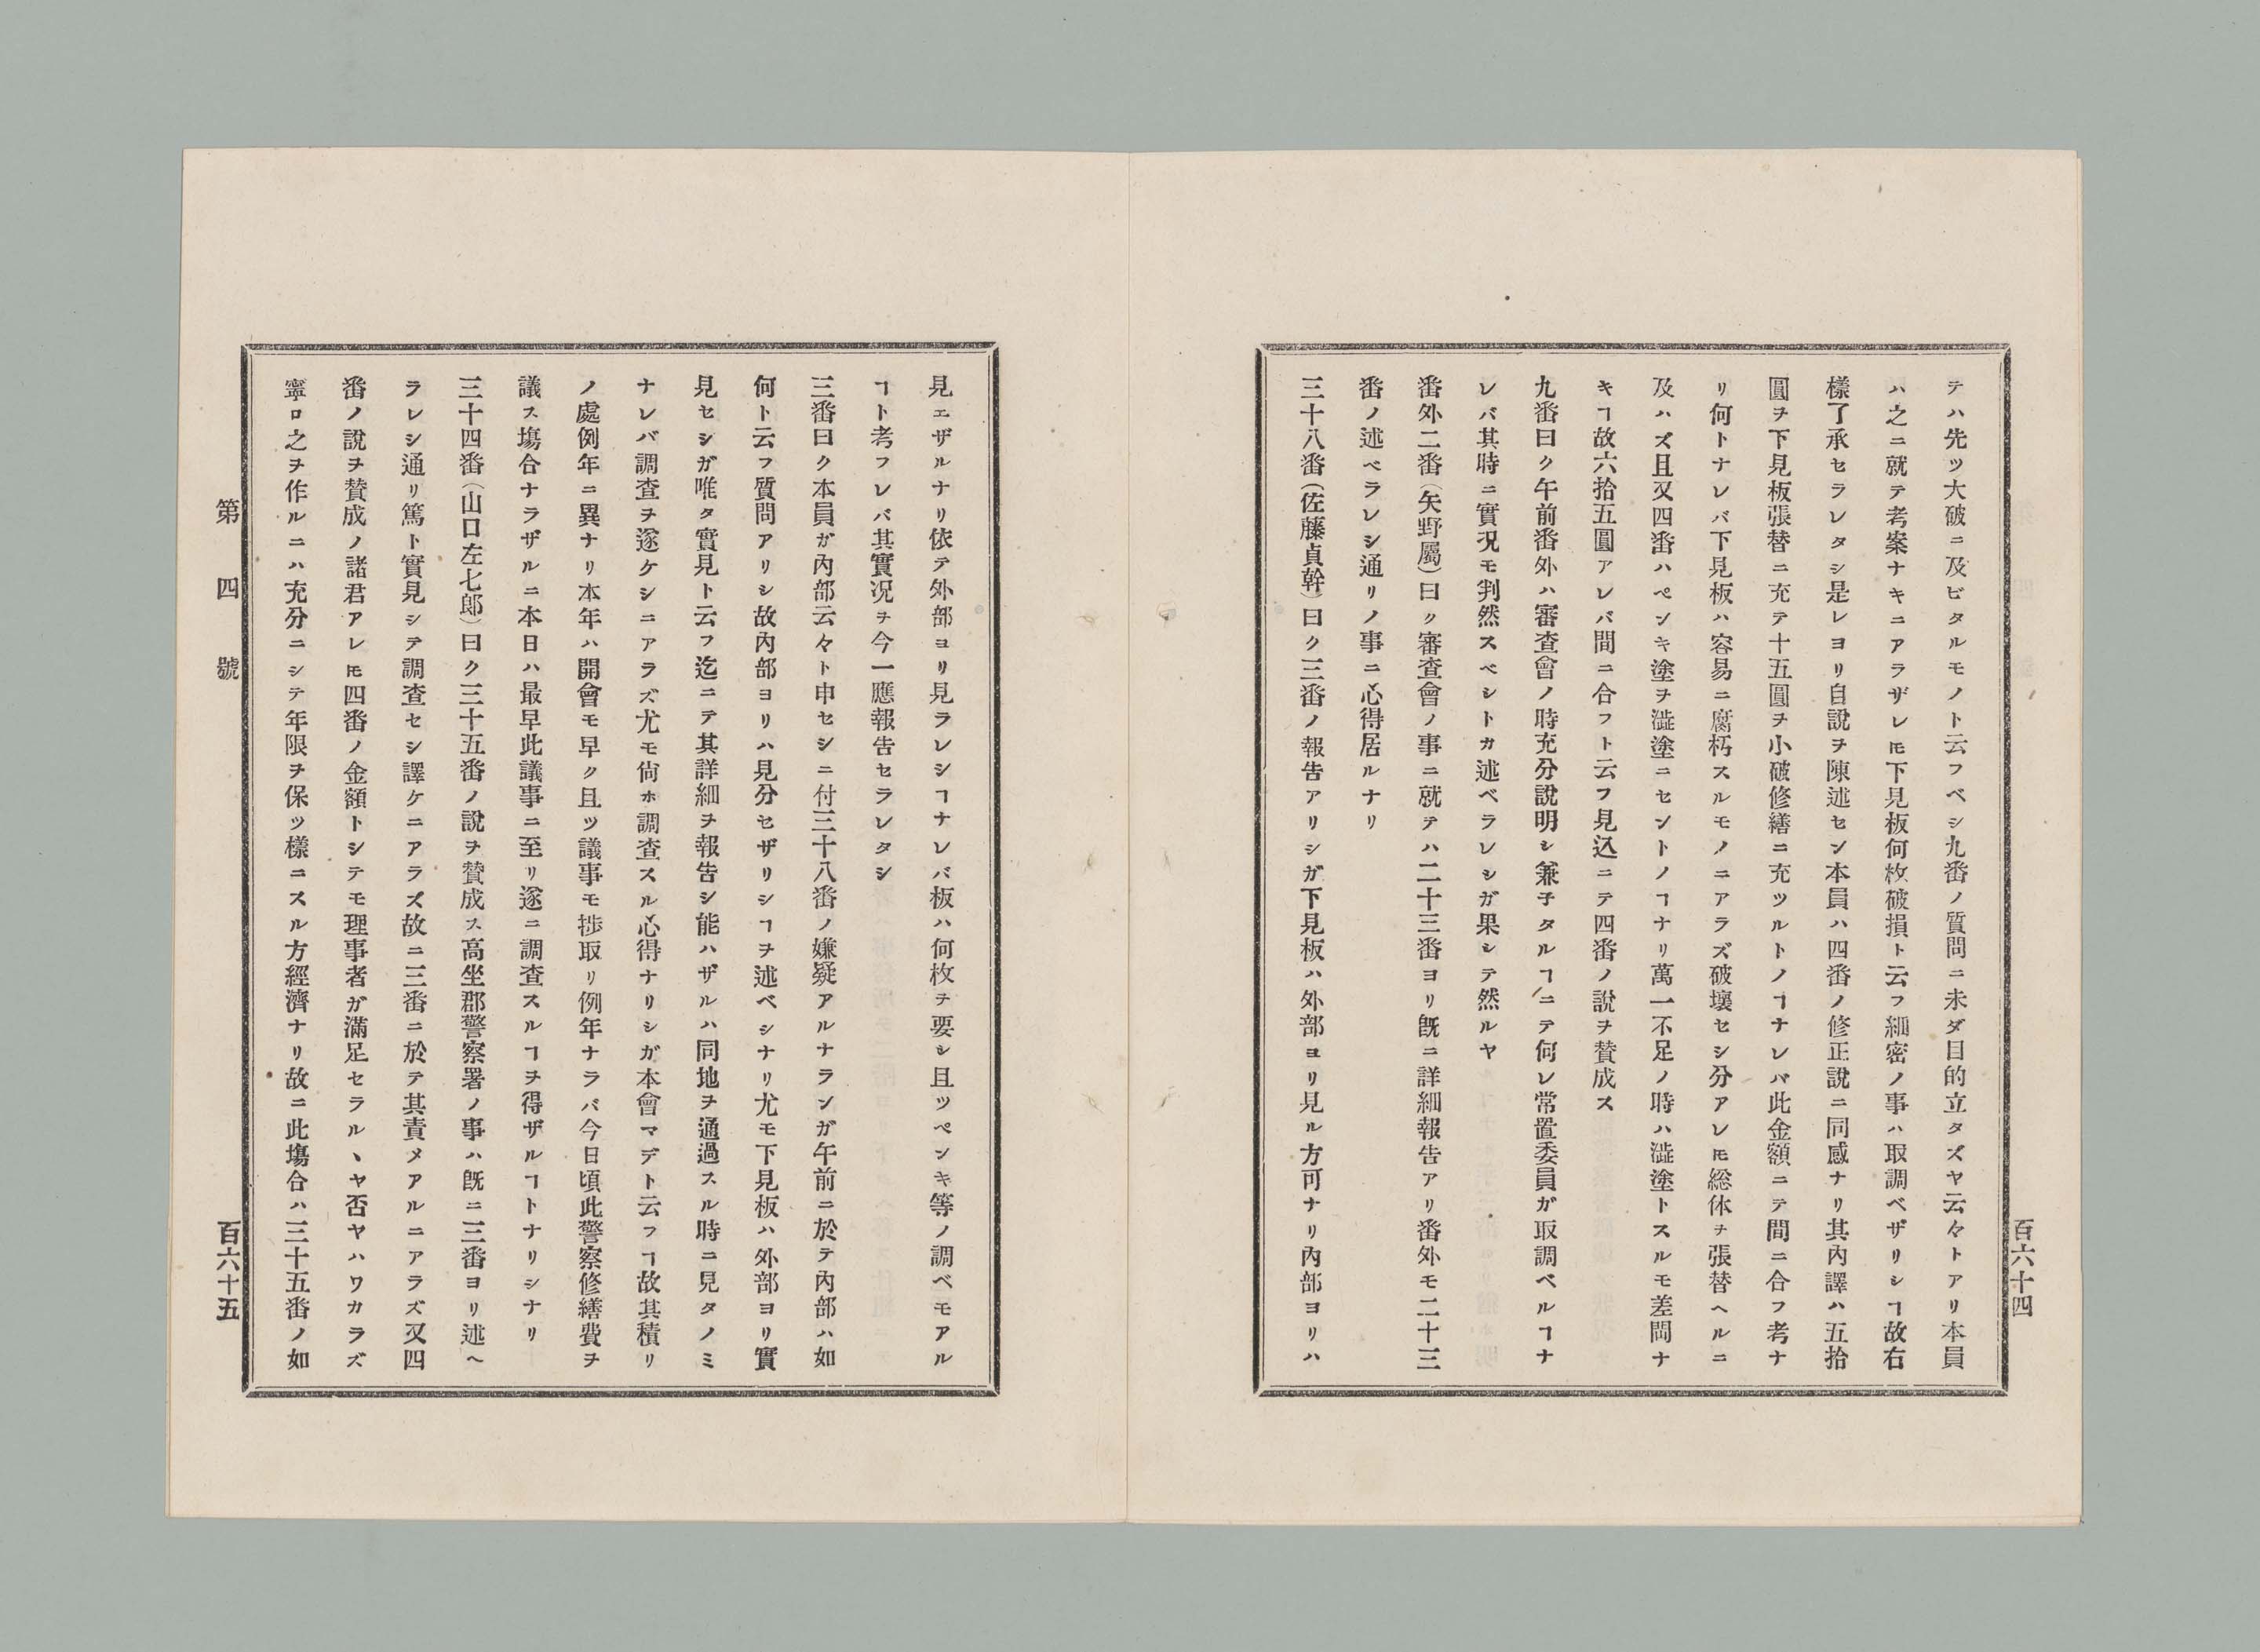 百六十四
テハ先ツ大破ニ及ビタルモノト云フベシ九番ノ質問ニ未ダ目的立タズヤ云々トアリ本員
ハ之ニ就テ考案ナキニアラザレ𪜈下見板何枚破損ト云フ細密ノ事ハ取調ベザリシヿ故右
樣了承セラレタシ是レヨリ自說ヲ陳述セン本員ハ四番ノ修正說ニ同感ナリ其內譯ハ五拾
圓ヲ下見板張替ニ充テ十五圓ヲ小破修繕ニ充ツルトノヿナレバ此金額ニテ間ニ合フ考ナ
リ何トナレバ下見板ハ容易ニ腐朽スルモノニアラズ破壞セシ分アレ𪜈総体ヲ張替ヘルニ
及ハズ且又四番ハペンキ塗ヲ澁塗ニセントノヿナリ萬一不足ノ時ハ澁塗トスルモ差閊ナ
キヿ故六拾五圓アレバ間ニ合フト云フ見込ニテ四番ノ說ヲ賛成ス
九番曰ク午前番外ハ審査會ノ時充分說明シ兼子タルヿニテ何レ常置委員ガ取調ベルヿナ
レバ其時ニ實況モ判然スベシトカ述ベラレシガ果シテ然ルヤ
番外二番(矢野屬)曰ク審査會ノ事ニ就テハ二十三番ヨリ既ニ詳細報告アリ番外モ二十三
番ノ述ベラレシ通リノ事ニ心得居ルナリ
三十八番(佐藤貞幹)曰ク三番ノ報告アリシガ下見板ハ外部ヨリ見ル方可ナリ內部ヨリハ
見エザルナリ依テ外部ヨリ見ラレシヿナレバ板ハ何枚ヲ要シ且ツペンキ等ノ調ベモアル
ヿト考フレバ其實況ヲ今一應報告セラレタシ
三番曰ク本員ガ內部云々ト申セシニ付三十八番ノ嫌疑アルナランガ午前ニ於テ內部ハ如
何ト云フ質問アリシ故內部ヨリハ見分セザリシヿヲ述ベシナリ尤モ下見板ハ外部ヨリ實
見セシガ唯タ實見ト云フ迄ニテ其詳細ヲ報告シ能ハザルハ同地ヲ通過スル時ニ見タノミ
ナレバ調查ヲ遂ケシニアラズ尤モ尙ホ調查スル心得ナリシガ本會マデト云フヿ故其積リ
ノ處例年ニ異ナリ本年ハ開會モ早ク且ツ議事モ捗取リ例年ナラバ今日頃此警察修繕費ヲ
議ス塲合ナラザルニ本日ハ最早此議事ニ至リ遂ニ調查スルヿヲ得ザルヿトナリシナリ
三十四番(山口左七郞)曰ク三十五番ノ說ヲ賛成ス高坐郡警察署ノ事ハ既ニ三番ヨリ述ヘ
ラレシ通リ篤ト實見シテ調查セシ譯ケニアラズ故ニ三番ニ於テ其責メアルニアラズ又四
番ノ說ヲ賛成ノ諸君アレ𪜈四番ノ金額トシテモ理事者ガ滿足セラルヽヤ否ヤハワカラズ
寧ロ之ヲ作ルニハ充分ニシテ年限ヲ保ツ樣ニスル方經濟ナリ故ニ此塲合ハ三十五番ノ如
第四號
百六十五